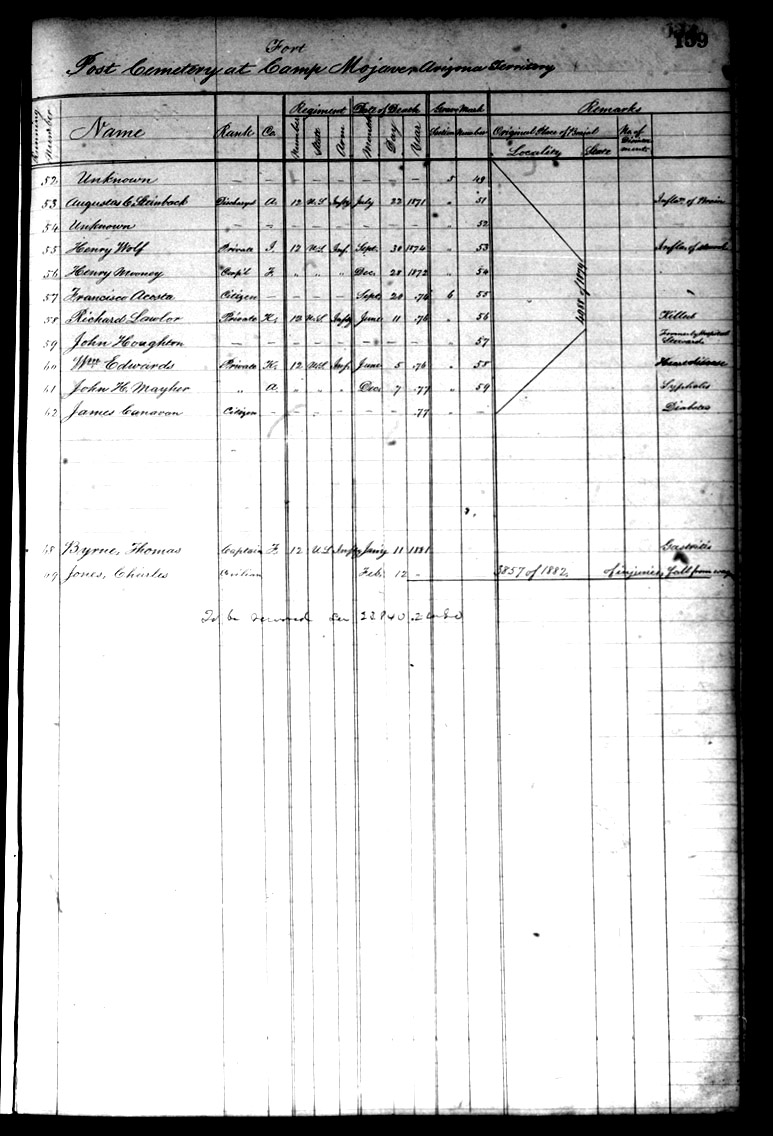 159
Fort
Post Cemetery at Camp Mojave, Arizona Territory
Running Number Name Rank Co. Regiment Date of Death Grave Mark Remarks
Number State Arm Month Day Year Section Number Original Place of Burial No. of
Locality State
52 Unknown – – – – – – – – 5 49
53 Augustus C. Steinback Discharged A. 12 U.S. Infy July 22 1871 " 51 Inflam. of Brain
54 Unknown – – – – – – – – " 52
55 Henry Wolf Private I. 12 U.S. Inf. Sept. 30 1874 " 53 Inflam. of
56 Henry Mooney Corp'l F. " " " Dec. 28 1872 " 54
57 Francisco Acosta Citizen – – – – Sept. 24 .76 6 55 "
58 Richard Lawlor Private K. 12 U.S. Infy June 11 .76 " 56 Killed
59 John Houghton – – – – – – – – " 57 Formerly Hospital Steward
60 Wm Edwards Private K. 12 U.S. Inf. June 5 .76 " 58
61 John H. Mayher " A. " " " Dec. 7 .77 " 59 Syphilis
62 James Canavan Citizen – – – – – – .77 " – Diabetes
4988 of 1879
68 Byrne, Thomas Captain F. 12 U.S. Infy Jany 11 1881 Gastritis
69 Jones, Charles Civilian Feb. 12 – 3857 of 1882. of injuries, fall from wag
To be removed